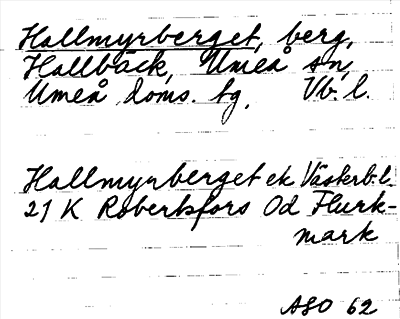 Hallmyrberget, berg,
Hallbäck, Umeå sn,
Umeå doms. tg, Vb. l.
Hallmyrberget ek Västerb.l.
21 K Robertsfors 0d Flurk-
mark
ASO 62